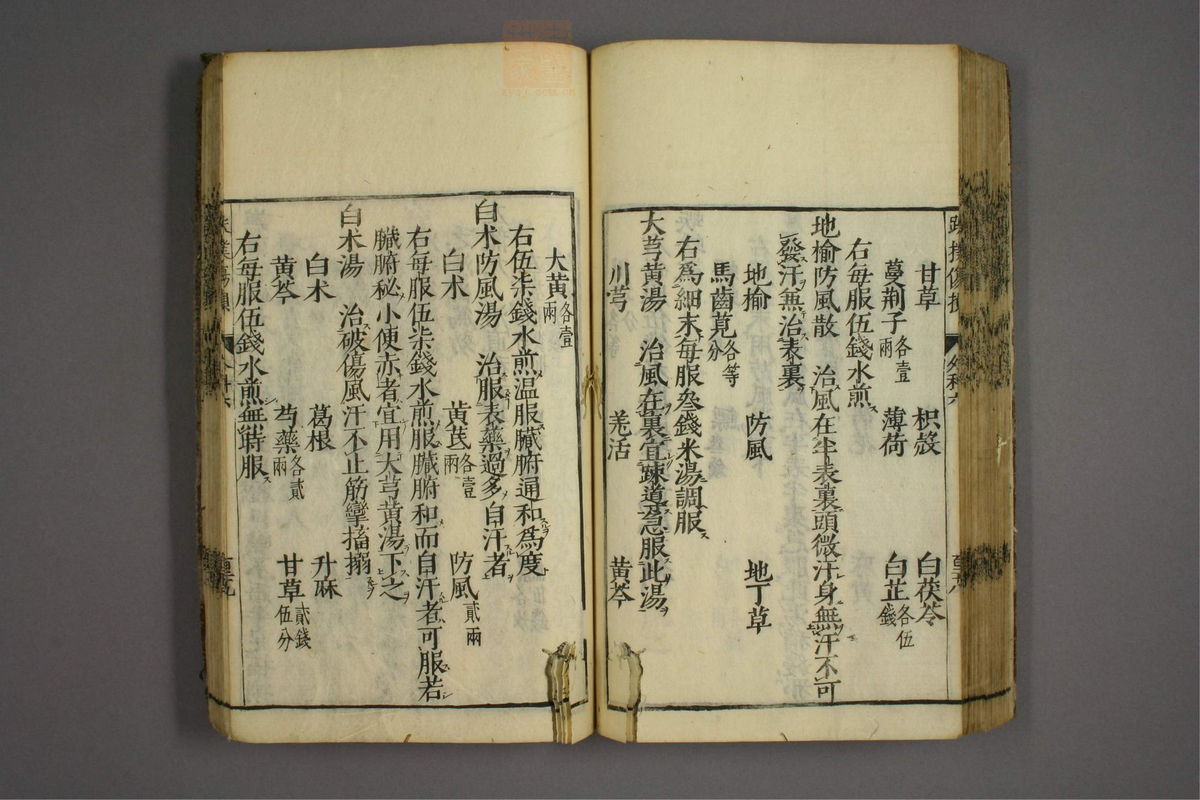 甘草 枳殼 白茯苓
蔓荆子各壹兩 薄荷 白芷各伍錢
右每服伍錢水煎
地榆防風散 治風在半表裏頭微汗身無汗不可
發汗無治表裏
地榆 防風 地丁草
馬齒莧各等分
右爲細末每服叁錢米湯調服
大芎黃湯 治風在裏宜踈導急服此湯
川芎 羌活 黃芩
大黃各壹兩
右伍柒錢水煎温服臟腑通和爲度
白术防風湯 治服表藥過多自汗者
白术 黃芪各壹兩 防風貳兩
右每服伍柒錢水煎服臟腑和而自汗者可服若
臟腑秘小便赤者宜用大芎黃湯下之
白术湯 治破傷風汗不止筋攣搐搦
白术 葛根 升麻
黃芩 芍藥各貳兩 甘草貳錢伍分
右每服伍錢水煎無時服